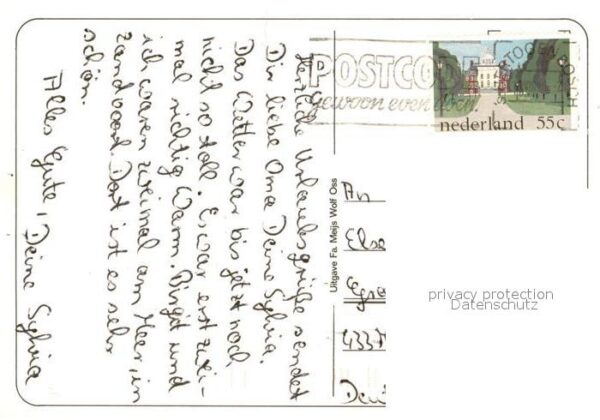 Herzliche Urlaubsgrüße sendet
Dir liebe Oma Deine Sylvia.
Das Wetter war bis jetzt noch
nicht so toll. Es war erst zwei-
mal richtig Warm. Birgit und
ich waren zweimal am Meer, in
Zandvoord. Dort ist es sehr
schön.
Alles Gute, Deine Sylvia
POSTCO
gewoon even doen
nederland 55c
Uitgave Fa. Meijs Wolf Oss
An
Else
4337
privacy protection
Datenschutz